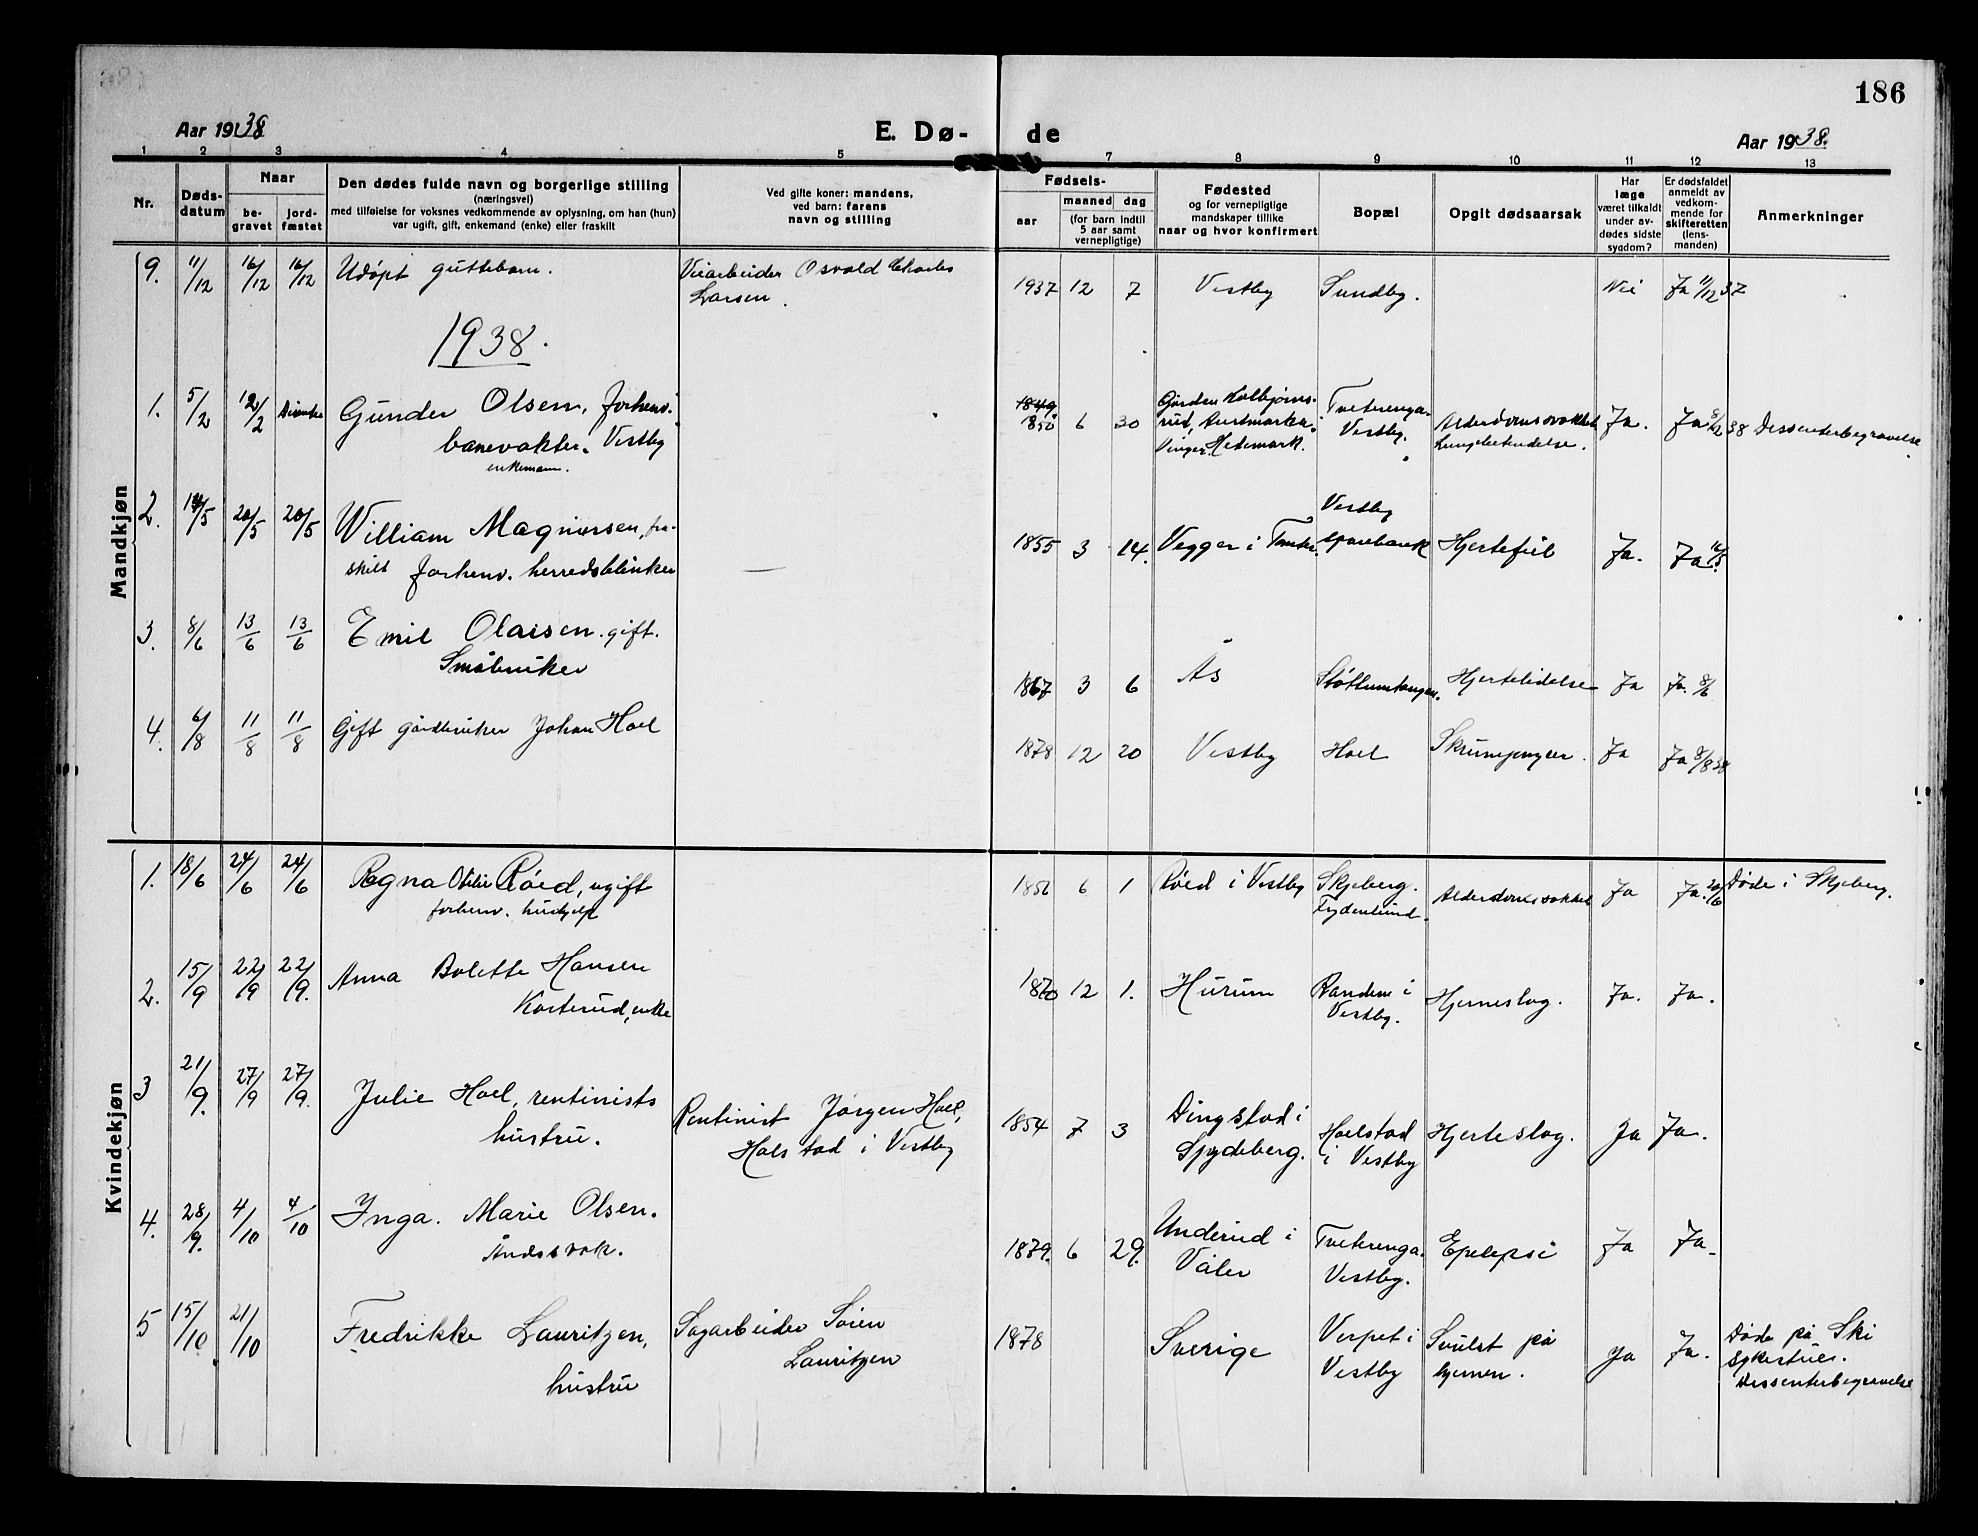 186
Aar 1938
E. Dø-
de
Aar 1938.
1 2 3 4 5 7 8 9 10 11 12 13
Nr.
Døds-
datum
Naar
be-
gravet
jord-
fæstet
Den dødes fulde navn og borgerlige stilling
(næringsvei)
med tilføielse for voksnes vedkommende av oplysning, om han (hun)
var ugift, gift, enkemand (enke) eller fraskilt
Ved gifte koner: mandens,
ved barn: farens
navn og stilling
Fødsels-
aar
maaned
dag
(for barn indtil
5 aar samt
vernepligtige)
Fødested
og for vernepligtige
mandskaper tillike
naar og hvor konfirmert
Bopæl
Opgit dødsaarsak
Har
læge
været tilkaldt
under av-
dødes sidste
sygdom?
Er dødsfaldet
anmeldt av
vedkom-
mende for
skifteretten
(lens-
manden)
Anmerkninger
Mandkjøn
9. 11/12 16/12 16/12 Udøpt guttebarn. Veiarbeider Osvald Charles 1937 12 7 Vestby Sundby. Nei Ja 11/12 37
Larsen.
1938.
1. 5/2 12/2 Gunder Olsen, forhenv. 1849 Gården Kolbjørns- Tveterenga.
banevokter. Vestby 1850 6 30 rud, Austmarka. Vestby. Alderdomssvakhet Ja. Ja 8/2 38 Dissenterbegravelse.
enkemann. Vinger. Hedemark. Lungebetendelse.
2. 14/5 20/5 20/5 William Magnussen, fra- Vestby
skilt forhenv. herredsblinker 1855 3 14. Vegger i sparebank Hjertefeil Ja. Ja 16/5.
3. 8/6 13/6 13/6 Emil Olaisen. gift.
Småbruker 1867 3 6 Ås Støtlumtangen. Hjertelidelse Ja Ja. 8/6
4. 6/8 11/8 11/8 Gift gårdbruker Johan Hoel 1878 12 20 Vestby Hoel Skrumpnyrer. Ja Ja 8/8 38
Kvindekjøn
1. 18/6 24/6 24/6 Ragna Otilie Røed, ugift 1856 6 1 Røed i Vestby Skjeberg. Alderdomssvakhet Ja Ja. 20/6 Døde i Skjeberg.
forhenv. hushjelp Frydenlund.
2. 15/9 22/9 22/9. Anna Bolette Hansen 1870 12 1. Hurum Randem i Hjerneslag. Ja. Ja.
Kosterud, enke Vestby.
3 21/9. 27/9 27/9. Julie Hoel, rentinists Rentinist Jørgen Hoel, 1854 7 3 Dingstad i Hoelstad Hjerteslag. Ja Ja.
hustru. Holstad i Vestby Spydeberg. i Vestby
4. 28/9. 4/10 4/10 Inga. Marie Olsen. 1879. 6 29. Underud i Tveterenga. Epelepsi Ja Ja.
Åndssvak. Våler Vestby.
5 15/10 21/10 Fredrikke Lauritzen, Sagarbeider Søren 1878 Sverige Verpet i Svulst på Ja Ja. Døde på Ski
hustru Lauritzen Vestby hjernen. sykestue.
Dissenterbegravelse